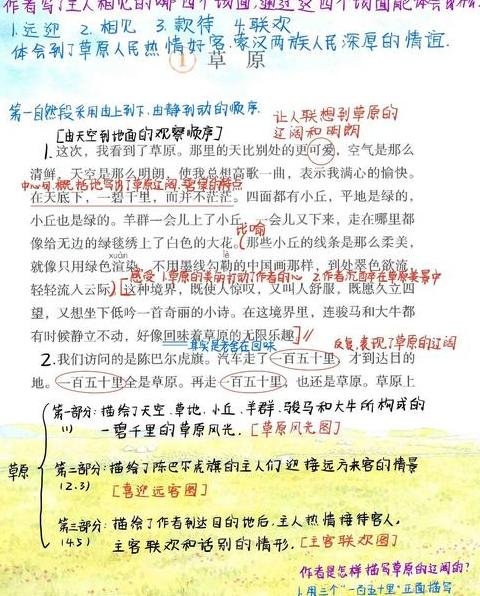 作者写了主人相见的哪四个场面,通过这四个场面能体会到什么
1.远迎 2.相见 3.款待 4.联欢
体会到了草原人民热情好客.蒙汉两族人民深厚的情谊.
① 草 原
第一自然段采用由上到下.由静到动的顺序.
让人联想到草原的
辽阔和明朗
[由天空到地面的观察顺序]
1.这次,我看到了草原。那里的天比别处的更可爱,空气是那么
清鲜,天空是那么明朗,使我总想高歌一曲,表示我满心的愉快。
中心句.概括地写出了草原辽阔.碧绿的特点
在天底下,一碧千里,而并不茫茫。四面都有小丘,平地是绿的,
小丘也是绿的。羊群一会儿上了小丘,一会儿又下来,走在哪里都
比喻
像给无边的绿毯绣上了白色的大花。那些小丘的线条是那么柔美,
xuàn lè
就像只用绿色渲染,不用墨线勾勒的中国画那样,到处翠色欲流,
感受 1.草原的美丽打动了作者的心 2.作者沉醉在草原美景中
轻轻流入云际。[这种境界,既使人惊叹,又叫人舒服,既愿久立四
望,又想坐下低吟一首奇丽的小诗。在这境界里,连骏马和大牛都
有时候静立不动,好像回味着草原的无限乐趣]
其实是老舍在回味
反复.表现了草原的辽阔
2.我们访问的是陈巴尔虎旗。汽车走了一百五十里,才到达目的
地。一百五十里全是草原。再走一百五十里,也还是草原。草原上
草原
第一部分:描绘了天空.草地.小丘.羊群.骏马和大牛所构成的
(1) 一碧千里的草原风光.[草原风光图]
第二部分:描绘了陈巴尔虎旗的主人们迎接远方来客的情景
(2.3) [喜迎远客图]
第三部分:描绘了作者到达目的地后.主人热情接待客人,
(4.5) 主客联欢和话别的情形.[主客联欢图]
作者是怎样描写草原的辽阔的?
1.用三个"一百五十里"正面描写